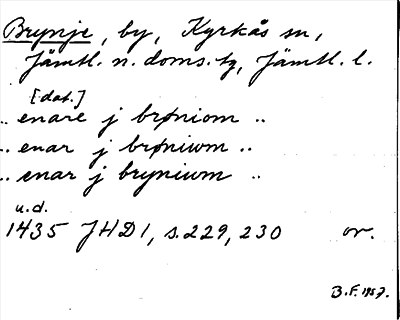 Brynje, by, Kyrkås sn,
Jämtl. n. doms. tg, Jämtl. l.
[dat.]
.. enare j brøniom ..
.. enar j brøniwm ..
.. enar j bryniwm ..
u.d.
1435 JHD1, s. 229, 230 or.
B.F. 1957.